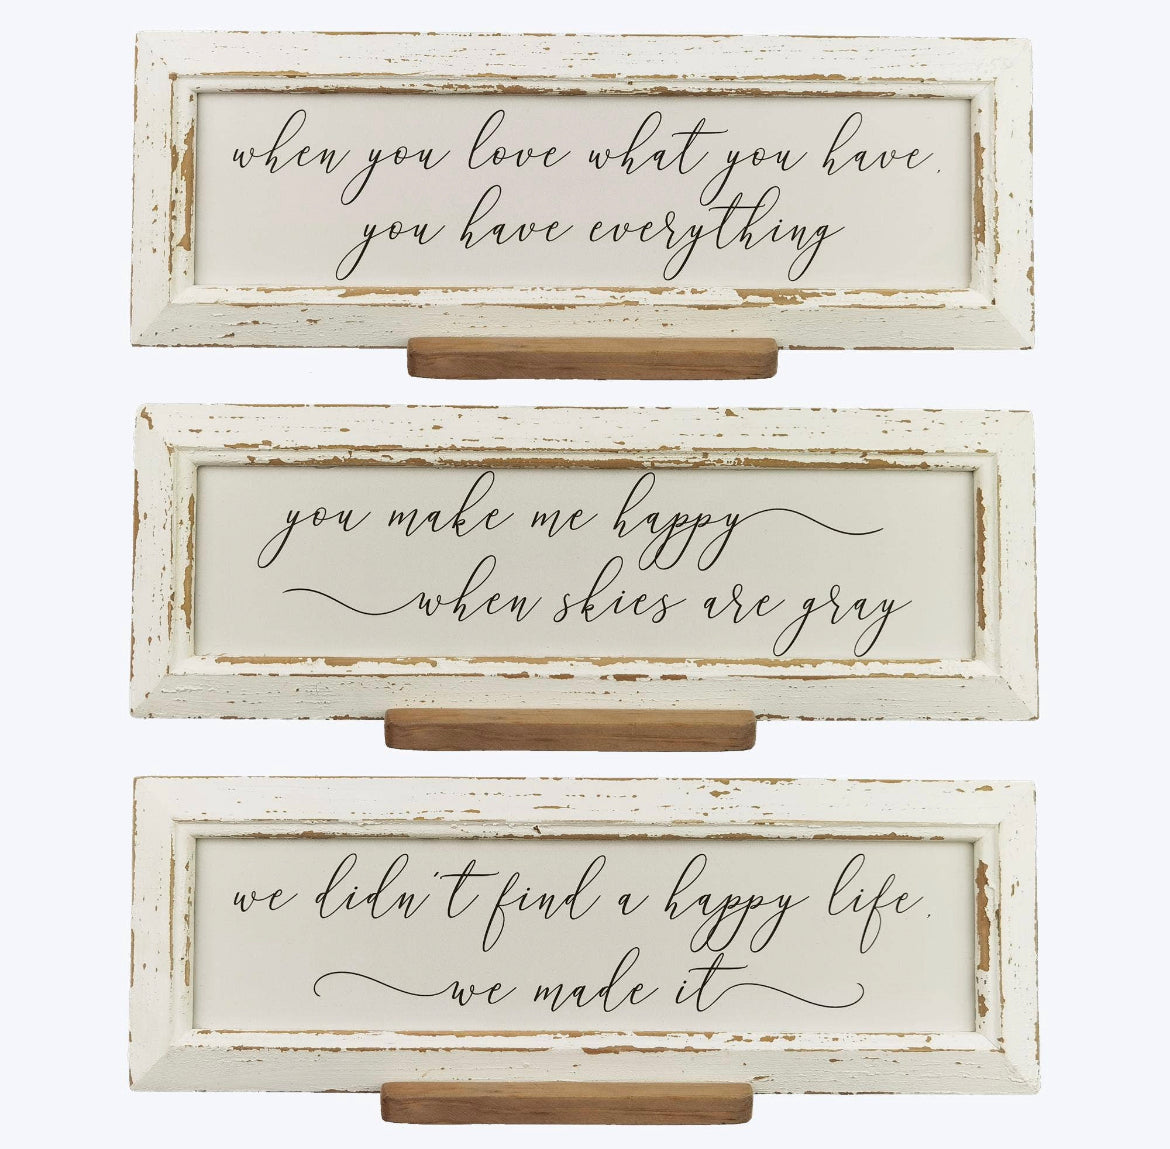 when you love what you have,
you have everything
you make me happy
when skies are gray
we didn't find a happy life,
we made it